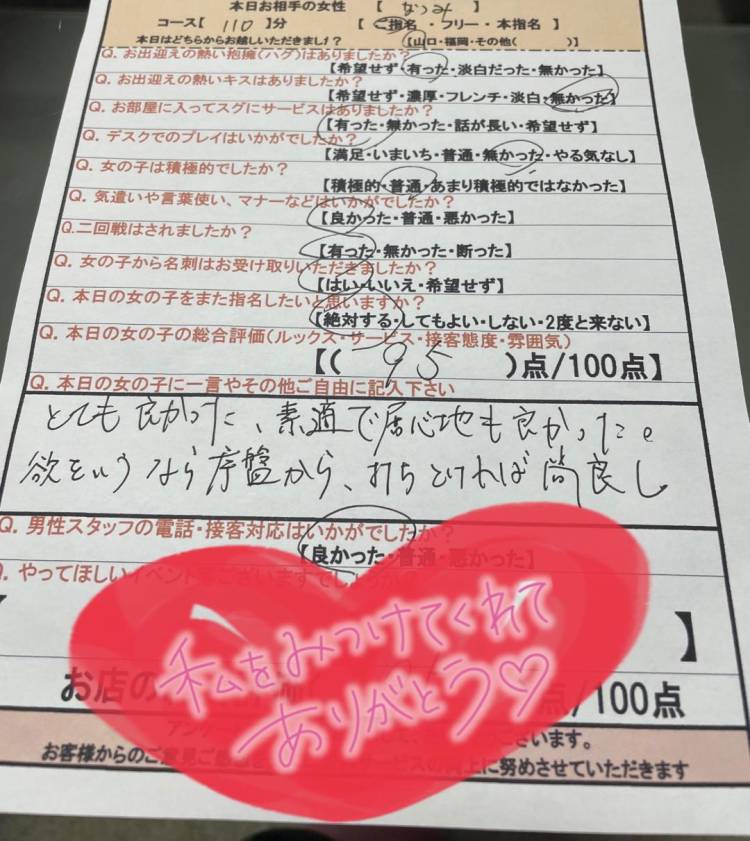 本日お相手の女性 【 なつみ 】
コース【 110 】分 【 ご指名・フリー・本指名 】
本日はどちらからお越しいただきまし? 【山口・福岡・その他( )】
Q. お出迎えの熱い抱擁(ハグ)はありましたか?
【希望せず・有った・淡白だった・無かった】
Q. お出迎えの熱いキスはありましたか?
【希望せず・濃厚・フレンチ・淡白・無かった】
Q. お部屋に入ってスグにサービスはありましたか?
【有った・無かった・話が長い・希望せず】
Q. デスクでのプレイはいかがでしたか?
【満足・いまいち・普通・無かった・やる気なし】
Q. 女の子は積極的でしたか?
【積極的・普通・あまり積極的ではなかった】
Q. 気遣いや言葉使い、マナーなどはいかがでしたか?
【良かった・普通・悪かった】
Q.二回戦はされましたか?
【有った・無かった・断った】
Q. 女の子から名刺はお受け取りいただきましたか?
【はい・いいえ・希望せず】
Q. 本日の女の子をまた指名したいと思いますか?
【絶対する・してもよい・しない・2度と来ない】
Q. 本日の女の子の総合評価(ルックス・サービス・接客態度・雰囲気)
【( 95 )点/100点】
Q. 本日の女の子に一言やその他ご自由に記入下さい
とても良かった、素適で居心地も良かった。
欲をいうなら序盤から、打ちとければ尚良し
Q. 男性スタッフの電話・接客対応はいかがでしたか?
【良かった・普通・悪かった】
Q. やってほしいイベント
】
お店の 点/100点
私をみつけてくれて
ありがとう♡
アン ざいます。
お客様からのご意見ご サービスの向上に努めさせていただきます